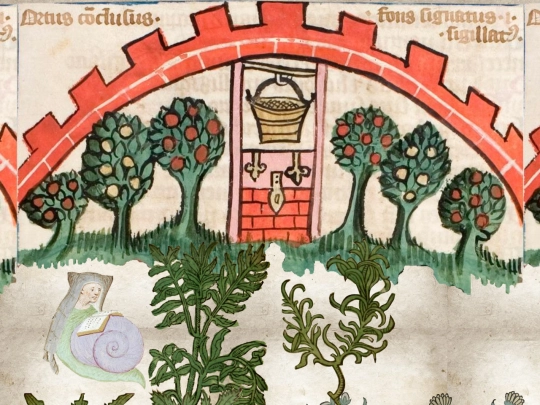 Ortus cōclusus·
fons signatus·i·
sigillatꝰ.